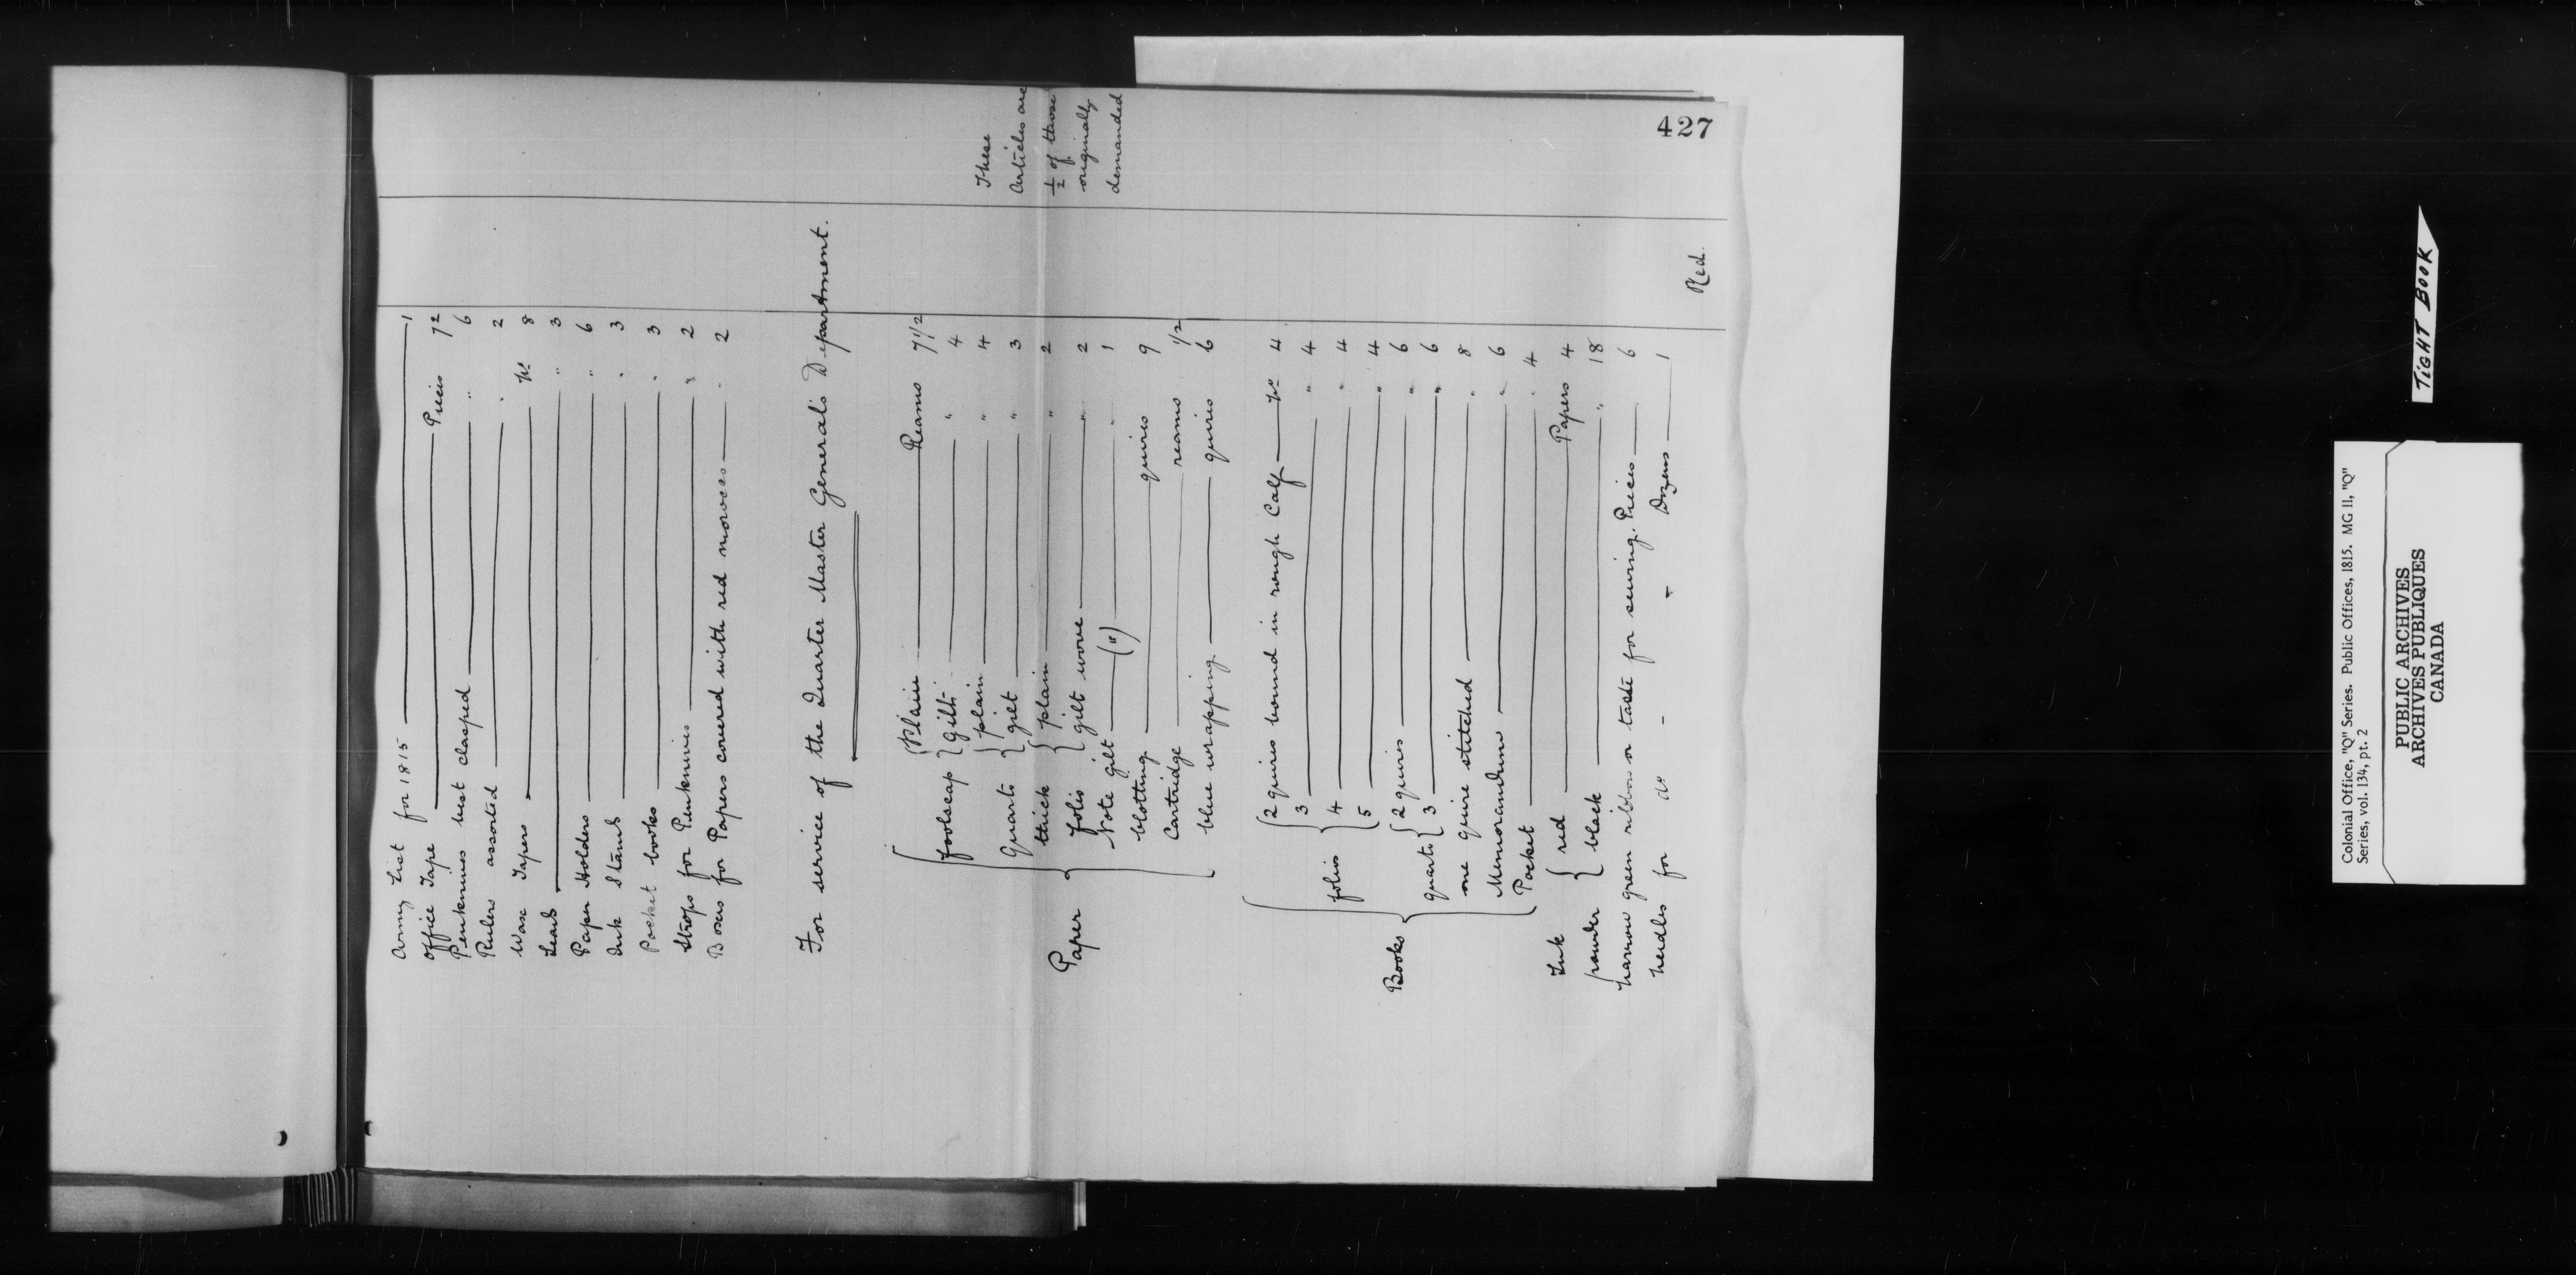 427
Army List for 1815 1
Office Tape Pieces 72
Penknives best clasped " 6
Rulers assorted " 2
Wax Tapers No 8
Seals " 3
Paper Holders " 6
Ink Stands " 3
Pocket books " 3
Strops for Penknives " 2
Boxes for Papers covered with red morocco " 2
For service of the Quarter Master General's Department.
Paper
foolscap { Plain Reams 7 1/2
gilt " 4
Quarto { plain " 4
gilt " 3
thick { plain " 2
folio { gilt wove " 2
Note gilt (") " 1
blotting quires 9
Cartridge reams 1/2
blue wrapping quires 6
These
Articles are
1/2 of those
originally
demanded
Books
folio { 2 quires bound in rough Calf No 4
3 " 4
4 " 4
5 " 4
quarto { 2 quires " 6
3 " 6
one quire stitched " 8
Memorandum " 6
Pocket " 4
Ink { red Papers 4
powder { black " 18
narrow green ribbon or taste for sewing. Pieces 6
needles for do - - Dozens 1
Red.
TIGHT BOOK
Colonial Office, "Q" Series. Public Offices, 1815. MG 11, "Q"
Series, vol. 134, pt. 2
PUBLIC ARCHIVES
ARCHIVES PUBLIQUES
CANADA